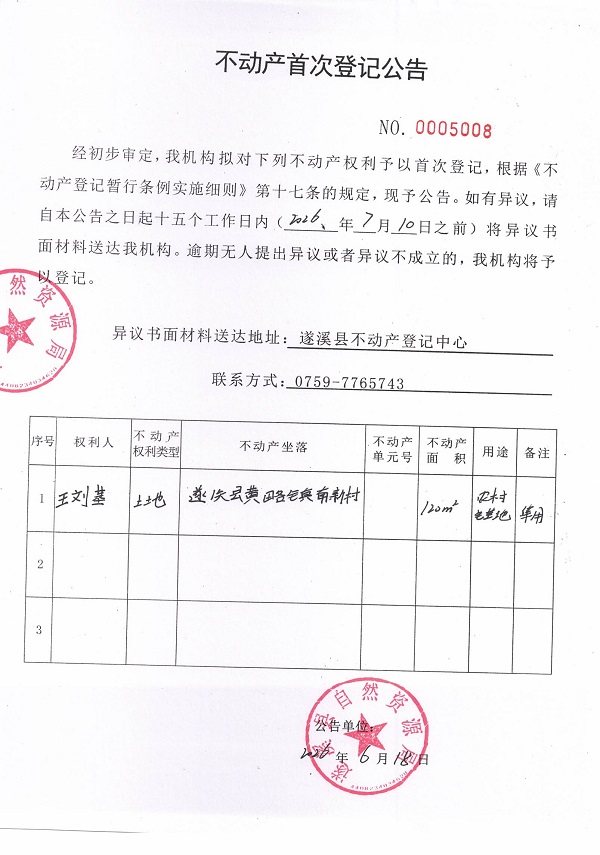 不动产首次登记公告
NO. 0005008
经初步审定，我机构拟对下列不动产权利予以首次登记，根据《不
动产登记暂行条例实施细则》第十七条的规定，现予公告。如有异议，请
自本公告之日起十五个工作日内（2026、年7月10日之前）将异议书
面材料送达我机构。逾期无人提出异议或者异议不成立的，我机构将予
以登记。
然资源局
4408234034620
异议书面材料送达地址：遂溪县不动产登记中心
联系方式：0759-7765743
序号 权利人 不动产权利类型 不动产坐落 不动产单元号 不动产面积 用途 备注
1 王刘基 土地 遂溪县黄略镇 南新村 120m² 农村宅基地 单用
2
3
遂溪县自然资源局
公告单位：
2026年6月18日
4408234034620